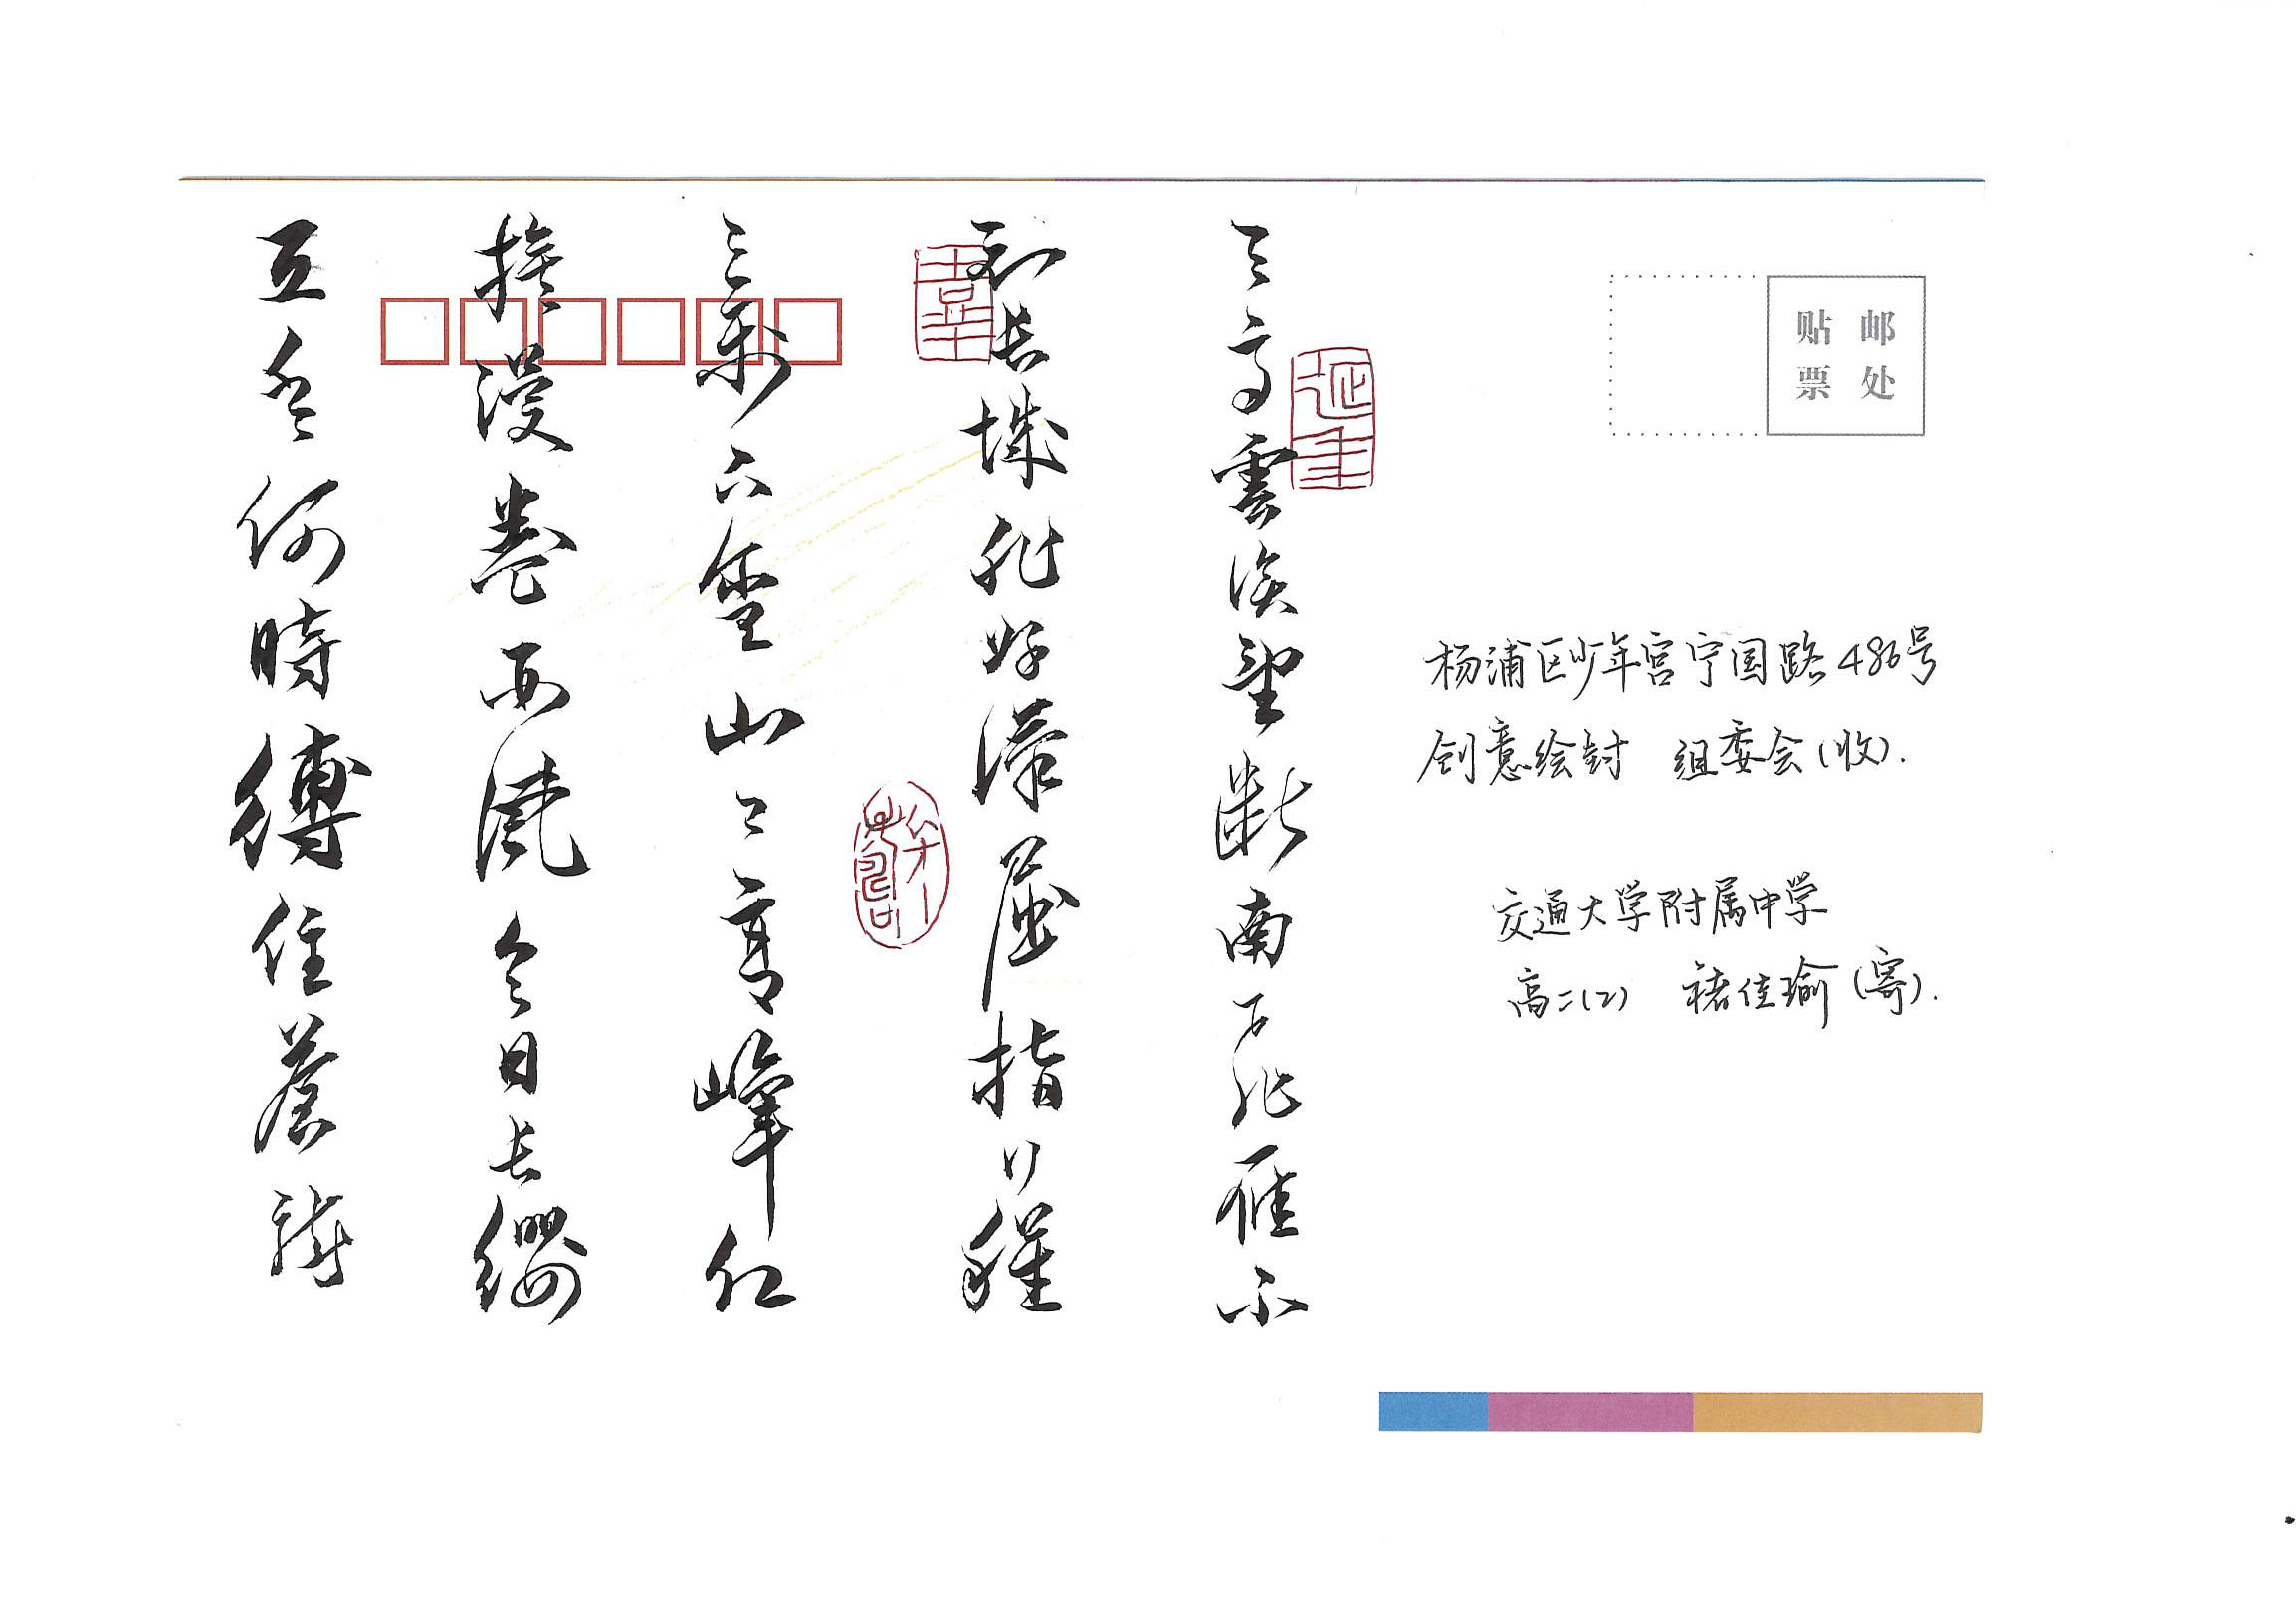 天高雲淡望断南飛雁不
到長城非好漢屈指行程
二萬六盤山上高峰紅
旗漫卷西風今日長纓
在手何時縛住蒼龍
延年
贴邮
票处
杨浦区少年宫宁国路486号
创意绘封 组委会(收).
交通大学附属中学
高二(2) 褚佳瑜(寄).